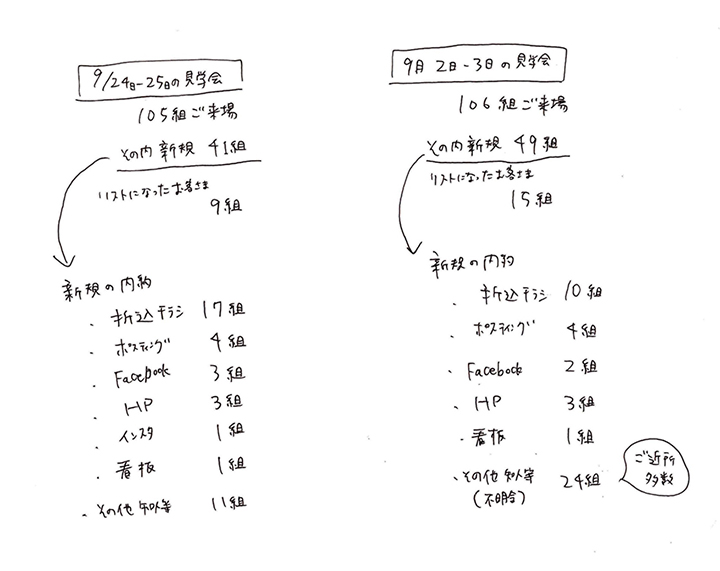 9/24日-25日の見学会
105組ご来場
その内新規 41組
リストになったお客さま
9組
新規の内約
・折込チラシ 17組
・ポスティング 4組
・Facebook 3組
・HP 3組
・インスタ 1組
・看板 1組
・その他 知人等 11組
9月 2日-3日の見学会
106組ご来場
その内新規 49組
リストになったお客さま
15組
新規の内約
・折込チラシ 10組
・ポスティング 4組
・Facebook 2組
・HP 3組
・看板 1組
・その他 知人等 24組
(不明含)
ご近所
多数